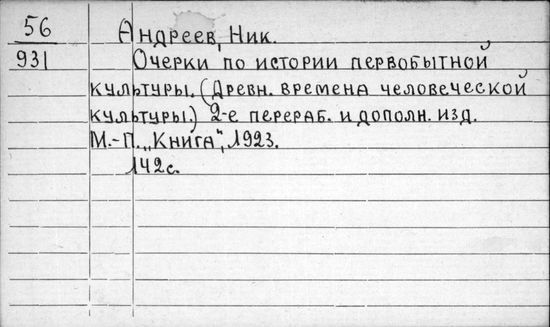 56
931
Андреев, Ник.
Очерки по истории первобытной
культуры. (Древн. времена человеческой
культуры.) 2-е перераб. и дополн. изд.
М.-П. „Книга", 1923.
142 с.